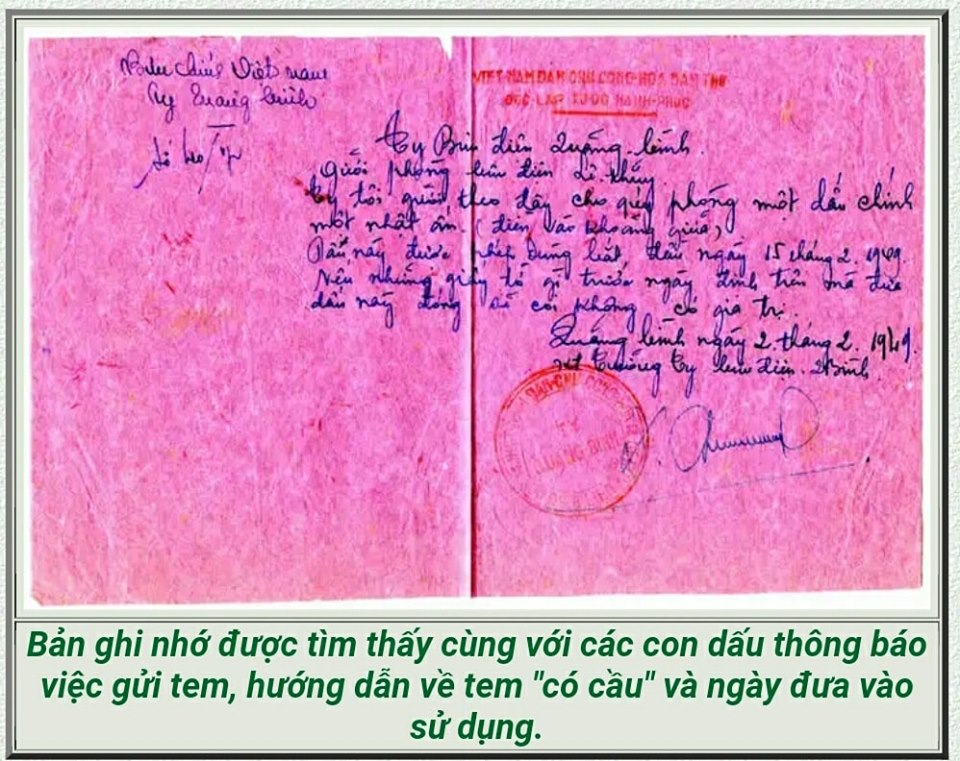 Bưu chính Việt nam
Ty Quảng bình
Số
VIỆT-NAM DÂN CHỦ CỘNG-HÒA DÂN
ĐỘC-LẬP TỰ-DO HẠNH-PHÚC
Ty Bưu điện Quảng-bình
Gửi phòng bưu điện
Ty tôi gửi theo đây cho quý phòng một dấu chính
một nhật ấn (điền vào khoảng giữa)
Dấu này được phép dùng bắt đầu ngày 15 tháng 2. 1949.
Nếu những giấy tờ gì trước ngày định trên mà đưa
dấu này đóng sẽ coi không có giá trị.
Quảng bình ngày 2 tháng 2. 1949.
Trưởng Ty bưu điện Q Bình
TY
QUẢNG BÌNH
Bản ghi nhớ được tìm thấy cùng với các con dấu thông báo
việc gửi tem, hướng dẫn về tem "có cầu" và ngày đưa vào
sử dụng.